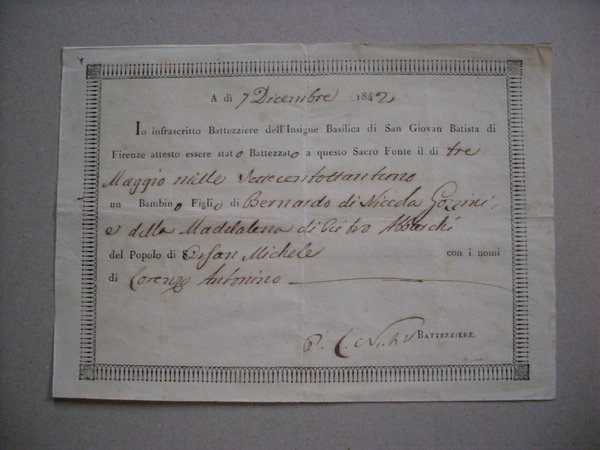 A di 7 Dicembre 1842
Io infrascritto Battezziere dell'Insigne Basilica di San Giovan Batista di
Firenze attesto essere stato Battezzato a questo Sacro Fonte il di tre
Maggio mille
un Bambino Figlio di Bernardo di Niccola
e della Maddalena di Pietro
del Popolo di S. Orsan Michele con i nomi
di Lorenzo Antonino
BATTEZZIERE.